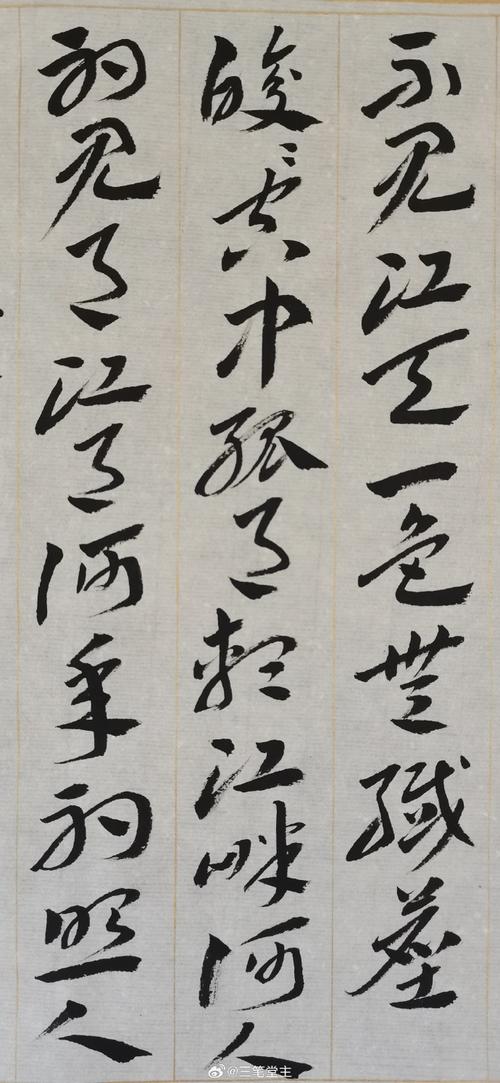 不見江天一色無纖塵
皎皎空中孤月輪江畔何人
初見月江月何年初照人
@三笔堂主